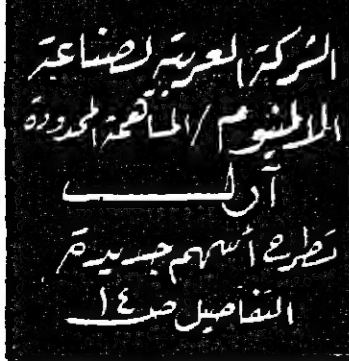 الشركة العربية لصناعة
الالمنيوم / المساهمة المحدودة
آرال
تطرح أسهم جديدة
التفاصيل ص ١٤